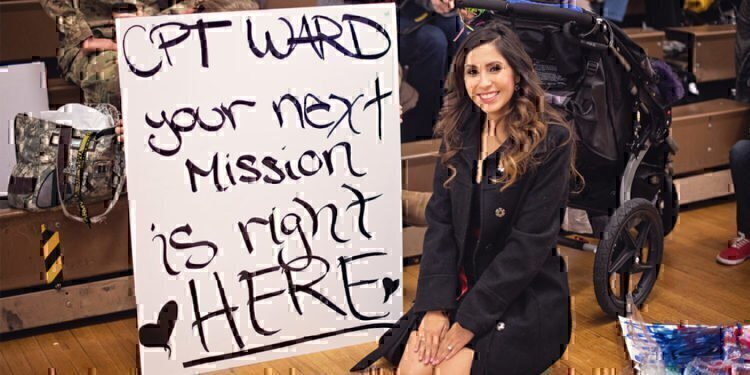 CPT WARD
your next
Mission
is right
HERE